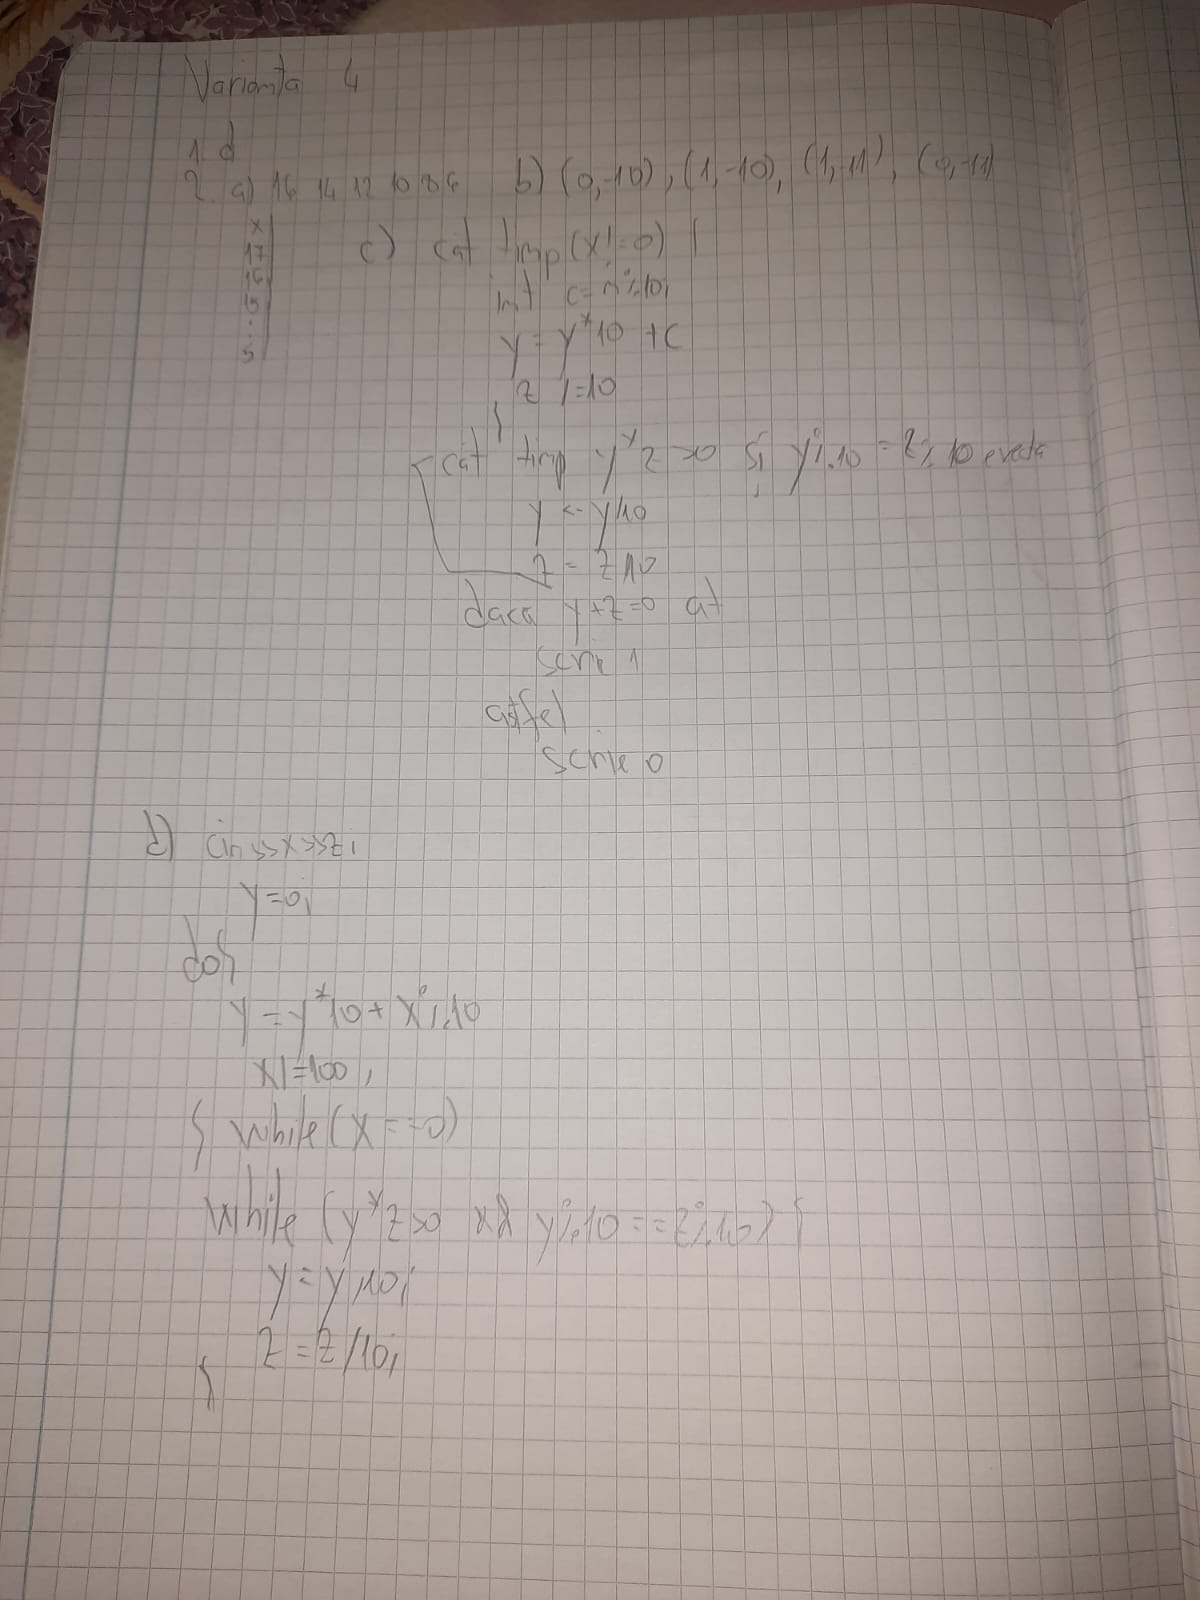 Varianta 4
1. d
2 a) 16 14 12 10 8 6 b) (0,-10), (1,-10), (1,-11), (0,-11)
x
17
16
5
:
5
c) cât timp (x!=0) {
int c=n%10;
y=y*10+c
z /=10
}
cât timp y*z>0 și y%10=z%10 executa
y<-y/10
z=z/10
daca y+z=0 at
scrie 1
altfel
scrie 0
d) cin>>x>>z;
y=0;
do{
y=y*10+x%10
x/=100;
} while(x==0)
while (y*z>0 && y%10==z%10) {
y=y/10;
z=z/10;
}